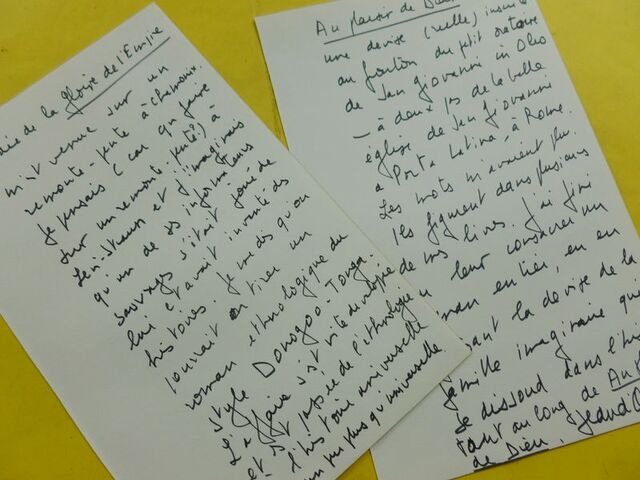 de la gloire de l'Empire
m'est venue sur un
remonte-pente à Chamonix.
Je pensais (car que faire
sur un remonte-pente?) à
Lévi-Strauss et j'imaginais
qu'un de ses informateurs
sauvages s'était joué de
lui et avait inventé des
histoires. Je me dis qu'on
pourrait en tirer un
roman ethnologique du
style Donogoo-Tonga.
L'affaire s'est vite développée
et est passée de l'ethnologie
l'histoire universelle
un peu plus qu'universelle
Au plaisir de Dieu
une devise (réelle) inscrite
au fronton du petit oratoire
de San Giovanni in Oleo
– à deux pas de la belle
église de San Giovanni
a Porta Latina, à Rome.
Les mots m'avaient plu.
Ils figurent dans plusieurs
de mes livres. J'ai fini
leur consacrer un
roman entier, en en
la devise de la
famille imaginaire qui
se dissout dans
tout au long de Au
de Dieu.